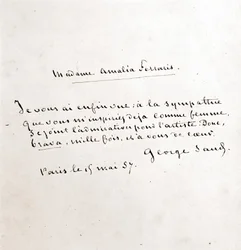 Madame Amalia Ferraris.
Je vous ai enfin vue: à la sympathie
que vous m'inspiriez déjà comme femme,
se joint l'admiration pour l'artiste. Donc,
brava, mille fois, et à vous de cœur.
George Sand
Paris le 15 mai 57.